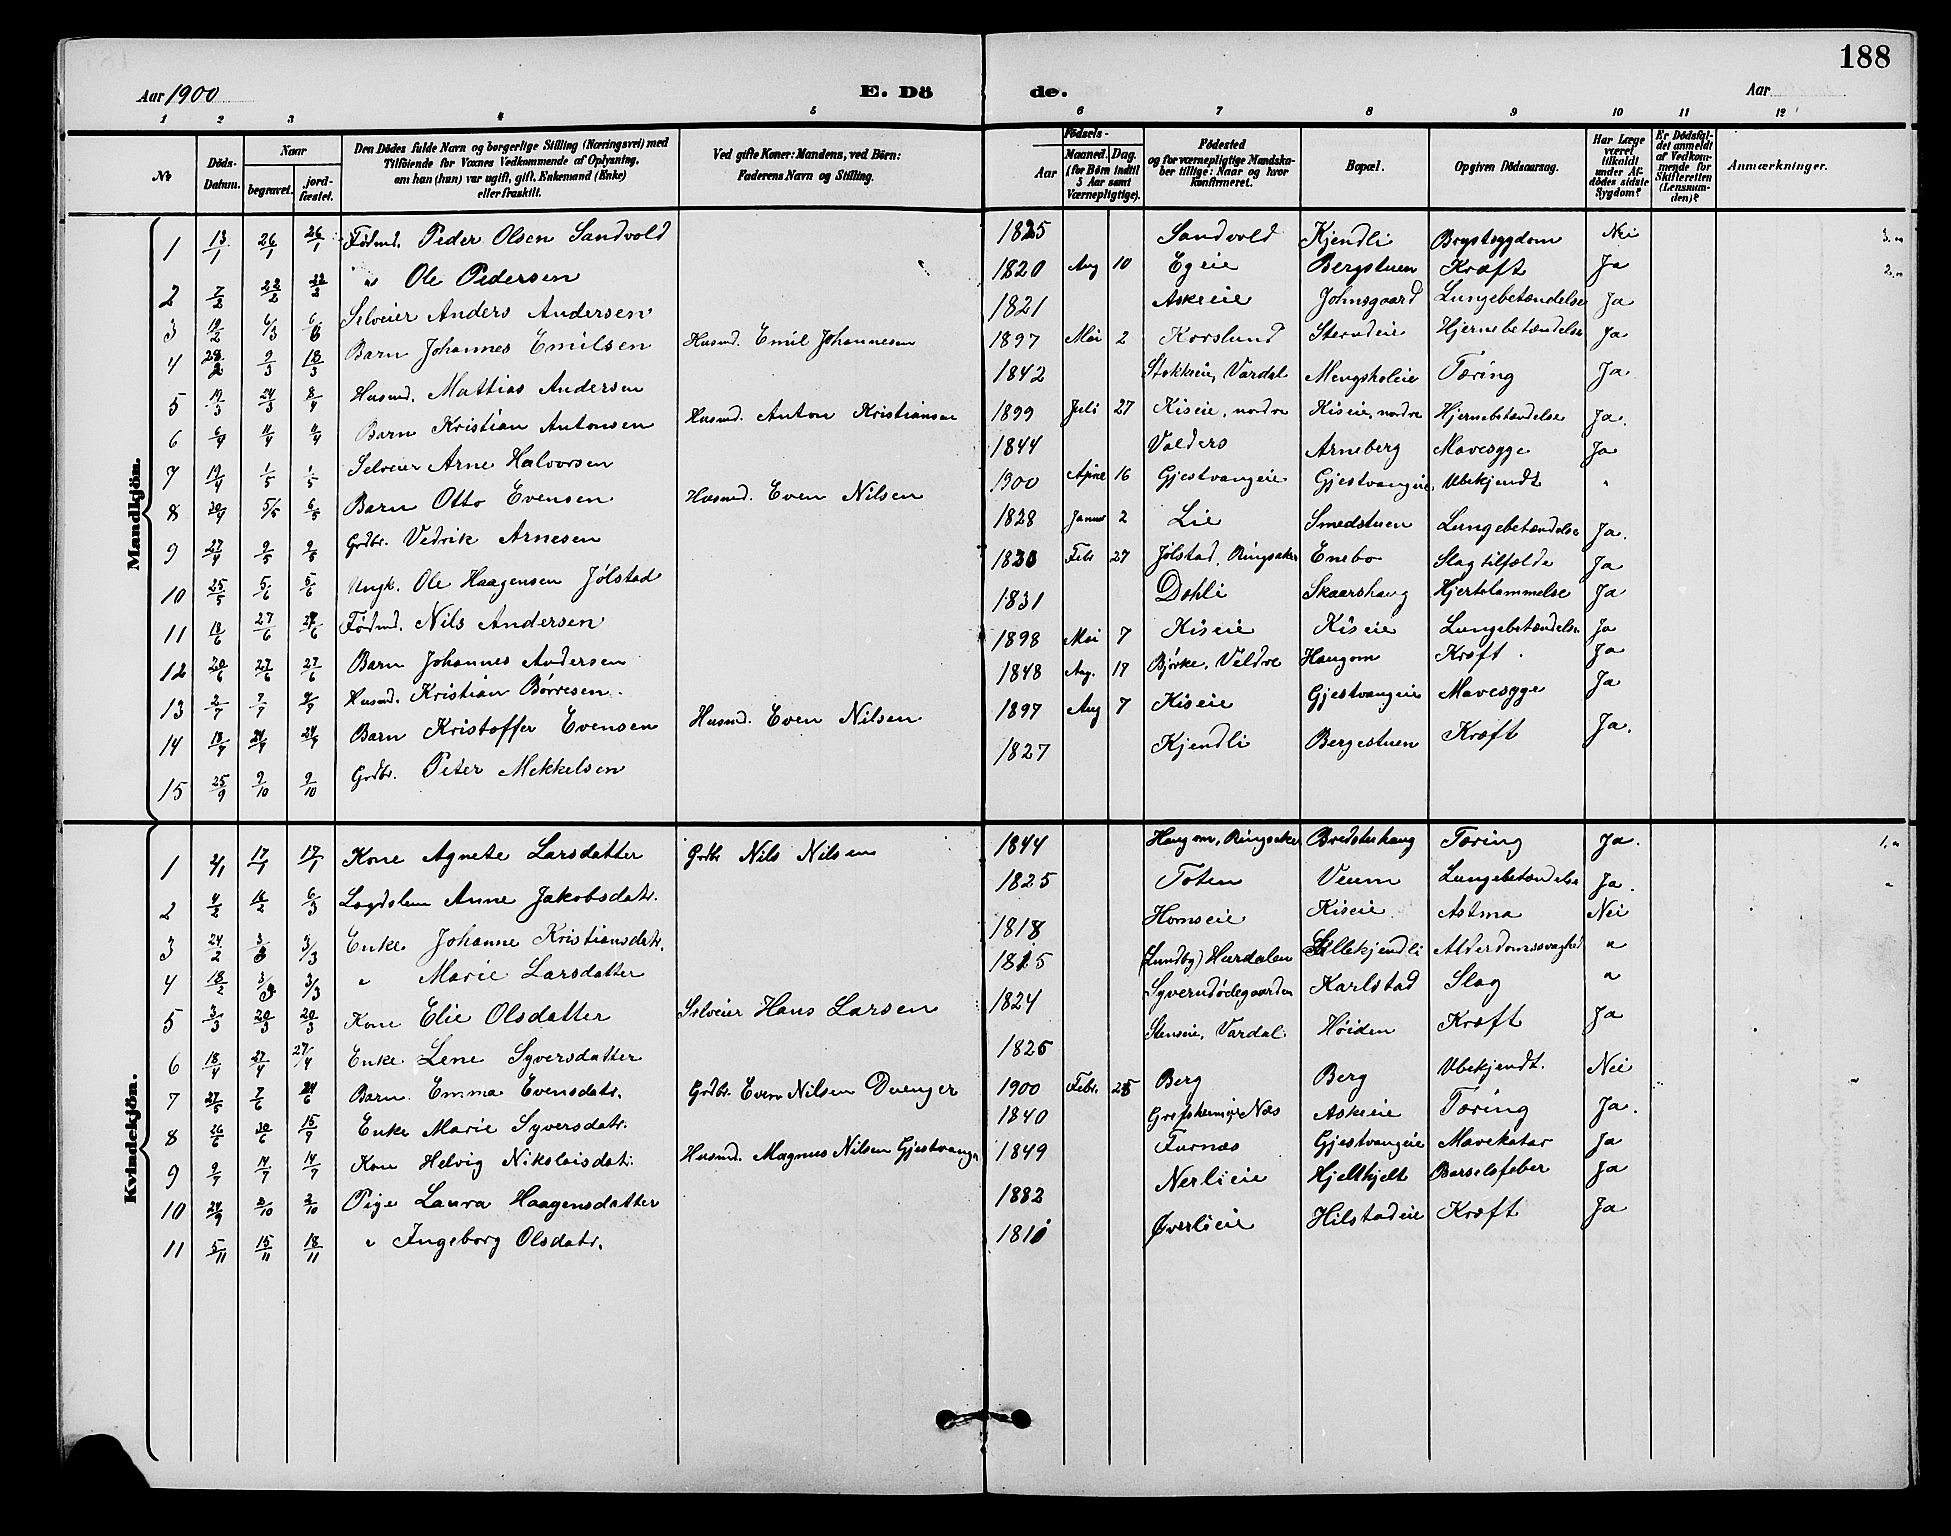 188
Aar 1900 E. Dö de. Aar
1 2 3 4 5 6 7 8 9 10 11 12
№ Döds-Datum. Naar begravet. jord-fæstet. Den Dödes fulde Navn og borgerlige Stilling (Næringsvei) med Tilföiende for Voxnes Vedkommende af Oplysning, om han (hun) var ugift, gift, Enkemand (Enke) eller fraskilt. Ved gifte Koner: Mandens, ved Börn: Faderens Navn og Stilling. Födsels- Aar Maaned. Dag. (for Börn indtil 5 Aar samt Værnepligtige). Födested og for værnepligtige Mandska-ber tillige: Naar og hvor konfirmeret. Bopæl. Opgiven Dödsaarsag. Har Læge været tilkaldt under Af-dödes sidste Sygdom? Er Dödsfal-det anmeldt af Vedkom-mende for Skifteretten (Lensman-den)? Anmærkninger.
Mandkjön.
1 13/1 26/1 26/1 Fødmd. Peder Olsen Sandvold 1825 Sandvold Kjendli Brystsygdom Nei
2 7/2 22/2 22/2 " Ole Pedersen 1820 Aug 10 Egeie Bergstuen Kræft Ja
3 19/2 6/3 6/3 Selveier Anders Andersen 1821 Askeeie Johnsgaard Lungebetændelse Ja
4 28/2 9/3 18/3 Barn Johannes Emilsen Husmd. Emil Johannesen 1897 Mai 2 Korslund Stendeie Hjernebetændelse Ja
5 19/3 24/3 8/4 Husmd. Mattias Andersen 1842 Stokkeie, Vardal Mengsholeie Tæring Ja
6 6/4 11/4 11/4 Barn Kristian Antonsen Husmd. Anton Kristiansen 1899 Juli 27 Kiseie, nordre Kiseie, nordre Hjernebetændelse Ja.
7 19/4 1/5 1/5 Selveier Arne Halvorsen 1844 Valders Arneberg Mavesyge Ja
8 30/4 5/5 6/5 Barn Otto Evensen Husmd. Even Nilsen 1900 April 16 Gjestvangeie Gjestvangeie. Ubekjendt "
9 27/4 9/5 9/5 Grdbr. Vedrik Arnesen 1828 Januar 2 Lie Smedstuen Lungebetændelse Ja.
10 25/5 5/6 5/6 Ungk. Ole Haagensen Jølstad 1830 Febr 27 Jølstad, Ringsaker Enebo Slagtilfælde Ja
11 18/6 27/6 27/6 Fødmd. Nils Andersen 1831 Dahli Skaarshaug Hjertelammelse Ja
12 20/6 27/6 27/6 Barn Johannes Andersen 1898 Mai 7 Kiseie Kiseie Lungebetændelse Ja
13 2/7 7/7 9/7 Husmd. Kristian Børresen. 1848 Aug. 17 Bjørke, Veldre Haugom Kræft. Ja
14 18/9 24/9 24/9 Barn Kristoffer Evensen Husmd. Even Nilsen 1897 Aug 7 Kiseie Gjestvangeie Mavesyge Ja
15 25/9 9/10 9/10 Grdbr. Peter Mekkelsen 1827 Kjendli Bergestuen Kræft Ja.
Kvindekjön.
1 17/1 17/1 Kone Agnete Larsdatter Grdbr Nils Nilsen 1844 Haugom, Ringsaker Bredstuhaug Tæring Ja.
2 4/2 16/2 6/3 Lægdslem Anne Jakobsdatr. 1825 Toten Veum Lungebetændelse Ja.
3 24/2 3/3 3/3 Enke Johanne Kristiansdatr. 1818 Hornseie Kiseie. Astma Nei
4 18/2 3/3 3/3 " Marie Larsdatter 1815 (Lundby) Hærdalen Lillekjendli Alderdomssvaghed "
5 3/3 20/3 20/3 Kone Elie Olsdatter Selveier Hans Larsen 1824 Syverudødegaarden Karlstad Slag "
6 18/4 27/4 27/4 Enke Lene Syversdatter 1826 Stenseie, Vardal. Høiden Kræft Ja
7 27/5 7/6 24/6 Barn Emma Evensdatr. Grdbr. Even Nilsen Dvenger 1900 Febr. 25 Berg Berg Ubekjendt. Nei
8 26/6 30/6 15/9 Enke Marie Syversdatr. 1840 Grefsheimeie Næs Askeeie Tæring Ja.
9 9/7 14/7 14/7 Kone Helvig Nikolaisdatr. Husmd. Magnus Nilsen Gjestvange 1849 Furnæs Gjestvangeie Mavekatar Ja
10 24/9 2/10 2/10 Pige Laura Haagensdatter 1882 Nerlieie Hjelthjelt Barselsfeber Ja
11 5/11 15/11 18/11 " Ingeborg Olsdatr. 1811 Øverlieie Hilstadeie Kræft Ja